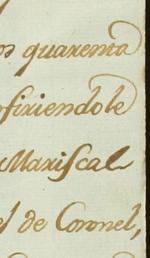 os quarenta
firiendole
Mariscal
el de Coronel,